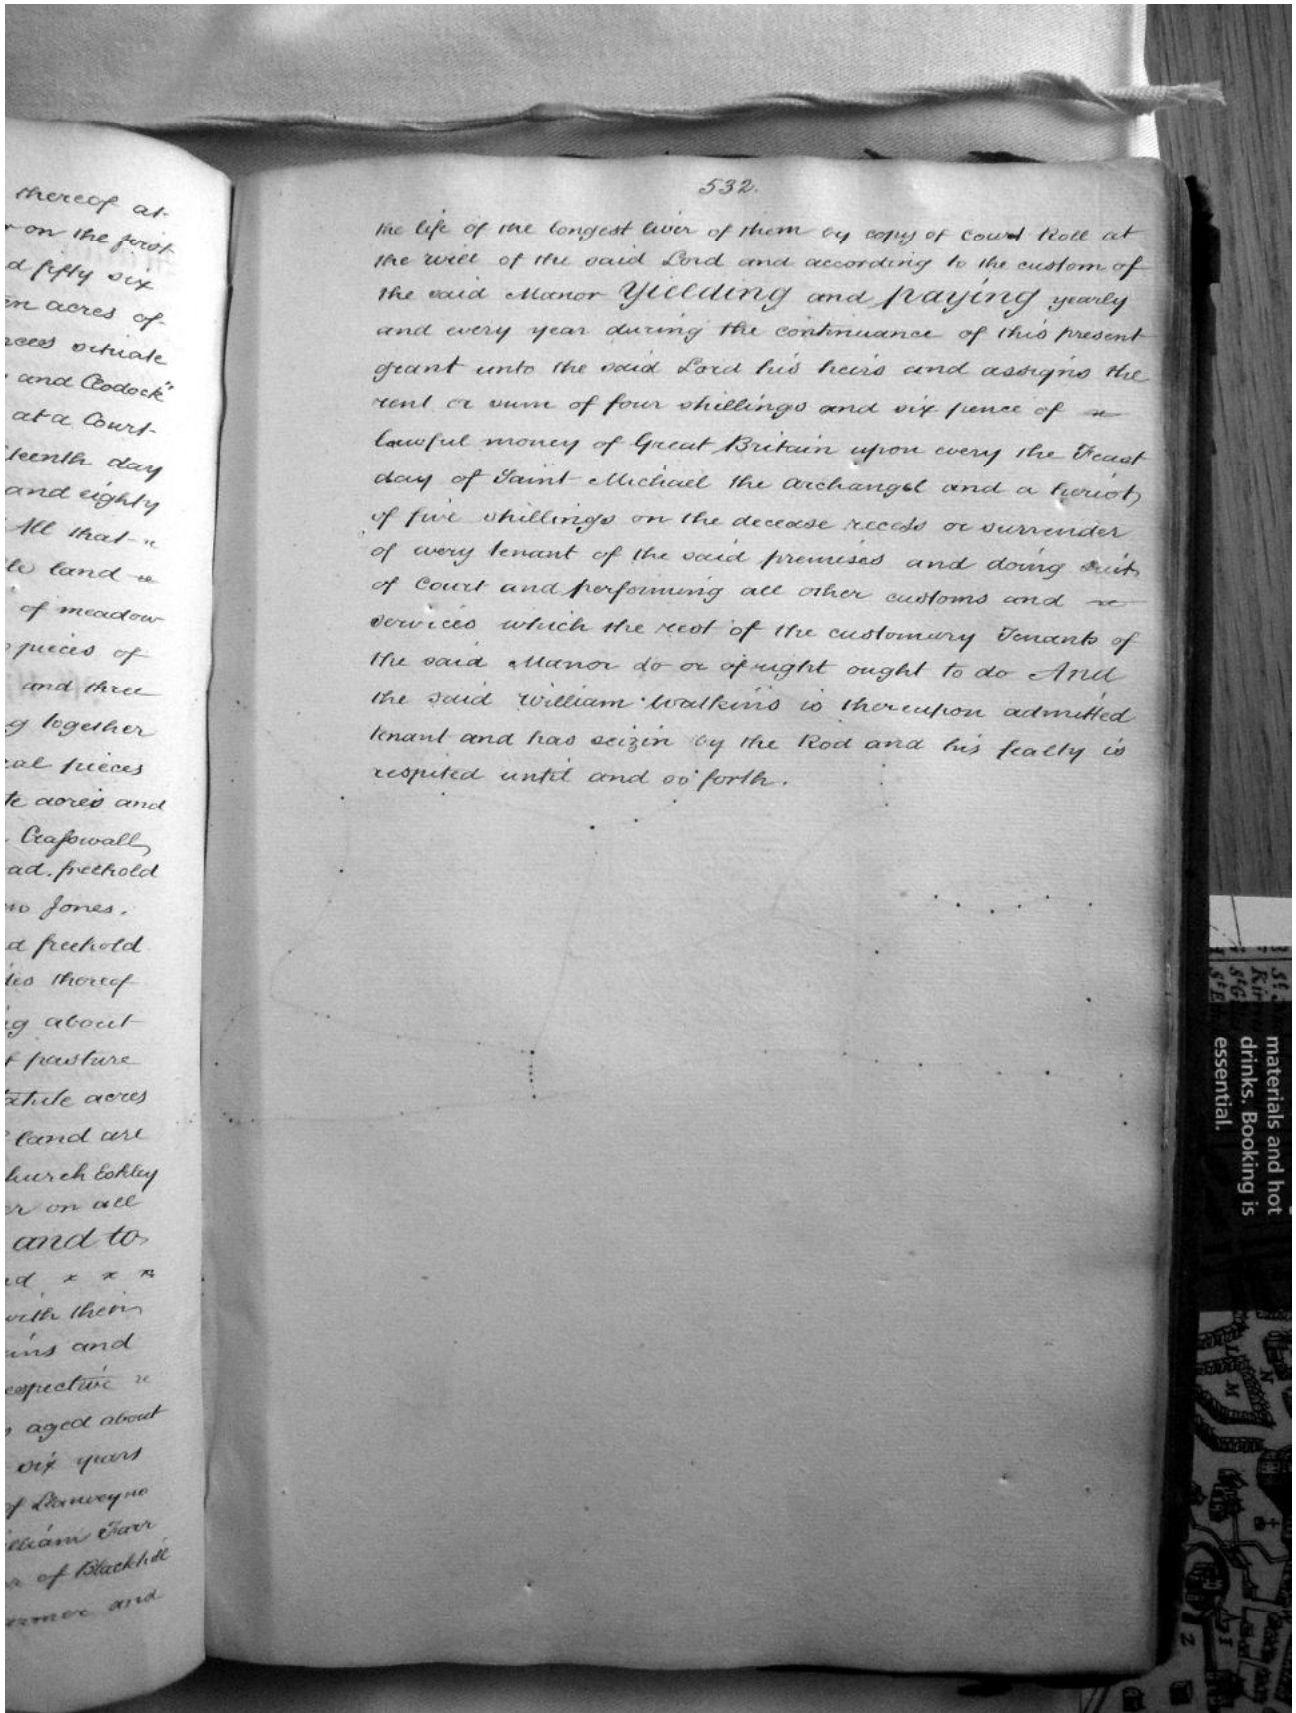 thereof at
on the first
d fifty six
en acres of
situate
and Clodock"
at a Court
teenth day
and eighty
All that
land
of meadow
pieces of
and three
g together
al pieces
te acres and
Crafswall
ad. freehold
Jones.
d freehold
thereof
g about
pasture
atute acres
land are
hurch Eskley
er on all
and to
d x x x
with their
ins and
espective
aged about
six years
of Llanveyno
illiam Farr
of Blackhill
armer and
532.
the life of the longest liver of them by copy of Court Roll at
the will of the said Lord and according to the custom of
the said Manor Yielding and paying yearly
and every year during the continuance of this present
grant unto the said Lord his heirs and assigns the
rent or sum of four shillings and six pence of
lawful money of Great Britain upon every the Feast
day of Saint Michael the Archangel and a heriot
of five shillings on the decease recess or surrender
of every tenant of the said premises and doing suit
of Court and performing all other customs and
services which the rest of the customary Tenants of
the said Manor do or of right ought to do And
the said William Watkins is thereupon admitted
tenant and has seizin by the Rod and his fealty is
respited until and so forth.
materials and hot
drinks. Booking is
essential.